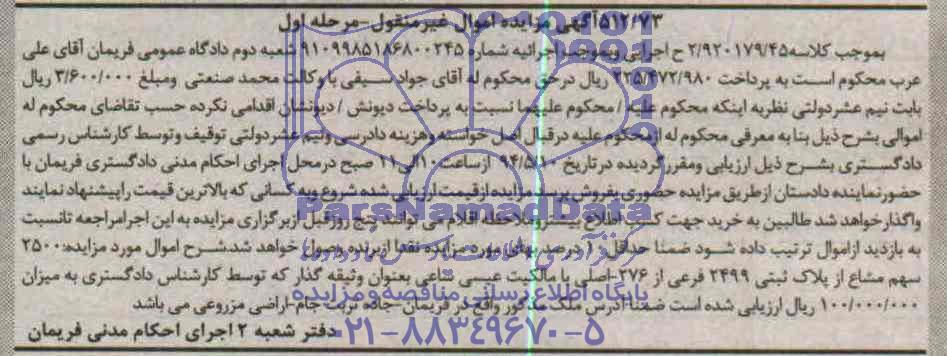 ۵۱۲/۷۳ آگهی مزایده اموال غیرمنقول-مرحله اول
بموجب کلاسه ۲/۹۲۰۱۷۹/۴۵ ح اجرایی وبموجب اجرائیه شماره ۹۱۰۹۹۸۵۱۸۶۸۰۰۲۴۵ شعبه دوم دادگاه عمومی فریمان آقای علی
عرب محکوم است به پرداخت ۲۲۵/۴۷۲/۹۸۰ ریال درحق محکوم له آقای جواد سیفی با وکالت محمد صنعتی ومبلغ ۳/۶۰۰/۰۰۰ ریال
بابت نیم عشردولتی نظربه اینکه محکوم علیه / محکوم علیهما نسبت به پرداخت دیونش / دیونشان اقدامی نکرده حسب تقاضای محکوم له
اموالی بشرح ذیل بنا به معرفی محکوم له ازمحکوم علیه درقبال اصل خواسته وهزینه دادرسی ونیم عشردولتی توقیف وتوسط کارشناس رسمی
دادگستری بشرح ذیل ارزیابی ومقررگردیده درتاریخ ۹۴/۵/۱۰ ازساعت ۱۰ الی ۱۱ صبح درمحل اجرای احکام مدنی دادگستری فریمان با
حضورنماینده دادستان ازطریق مزایده حضوری بفروش برسد مزایده ازقیمت ارزیابی شده شروع وبه کسانی که بالاترین قیمت راپیشنهاد نمایند
واگذار خواهد شد طالبین به خرید جهت کسب اطلاع بیشتر وملاحظه اقلام می توانند پنج روزقبل ازبرگزاری مزایده به این اجرامراجعه تانسبت
به بازدید ازاموال ترتیب داده شود ضمنا حداقل ۱۰ درصد بهای مورد مزایده نقدا ازبرنده وصول خواهد شد.شرح اموال مورد مزایده:۲۵۰۰
سهم مشاع از پلاک ثبتی ۲۴۹۹ فرعی از ۲۷۶-اصلی با مالکیت عیسی بقاعی بعنوان وثیقه گذار که توسط کارشناس دادگستری به میزان
۱۰۰/۰۰۰/۰۰۰ ریال ارزیابی شده است ضمنا آدرس ملک مذکور واقع در فریمان- جاده تربت جام-اراضی مزروعی می باشد
دفتر شعبه ۲ اجرای احکام مدنی فریمان
ParsNamadData
پایگاه اطلاع رسانی مناقصه و مزایده
۰۲۱-۸۸۳۴۹۶۷۰-۵